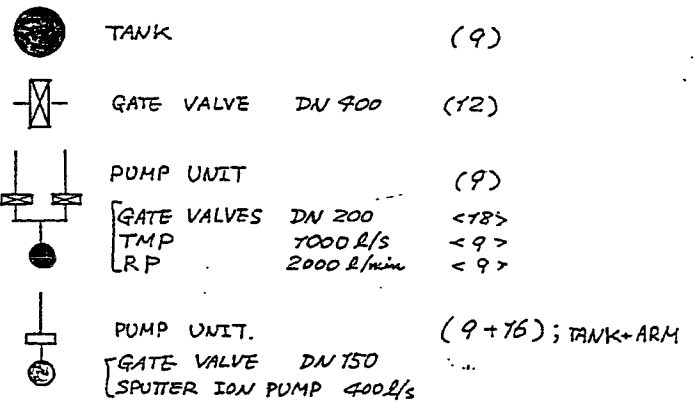 TANK (9)
GATE VALVE DN 400 (12)
PUMP UNIT (9)
GATE VALVES DN 200 <18>
TMP 1000 l/s <9>
RP 2000 l/min <9>
PUMP UNIT. (9+16); TANK+ARM
GATE VALVE DN 150
SPUTTER ION PUMP 400 l/s